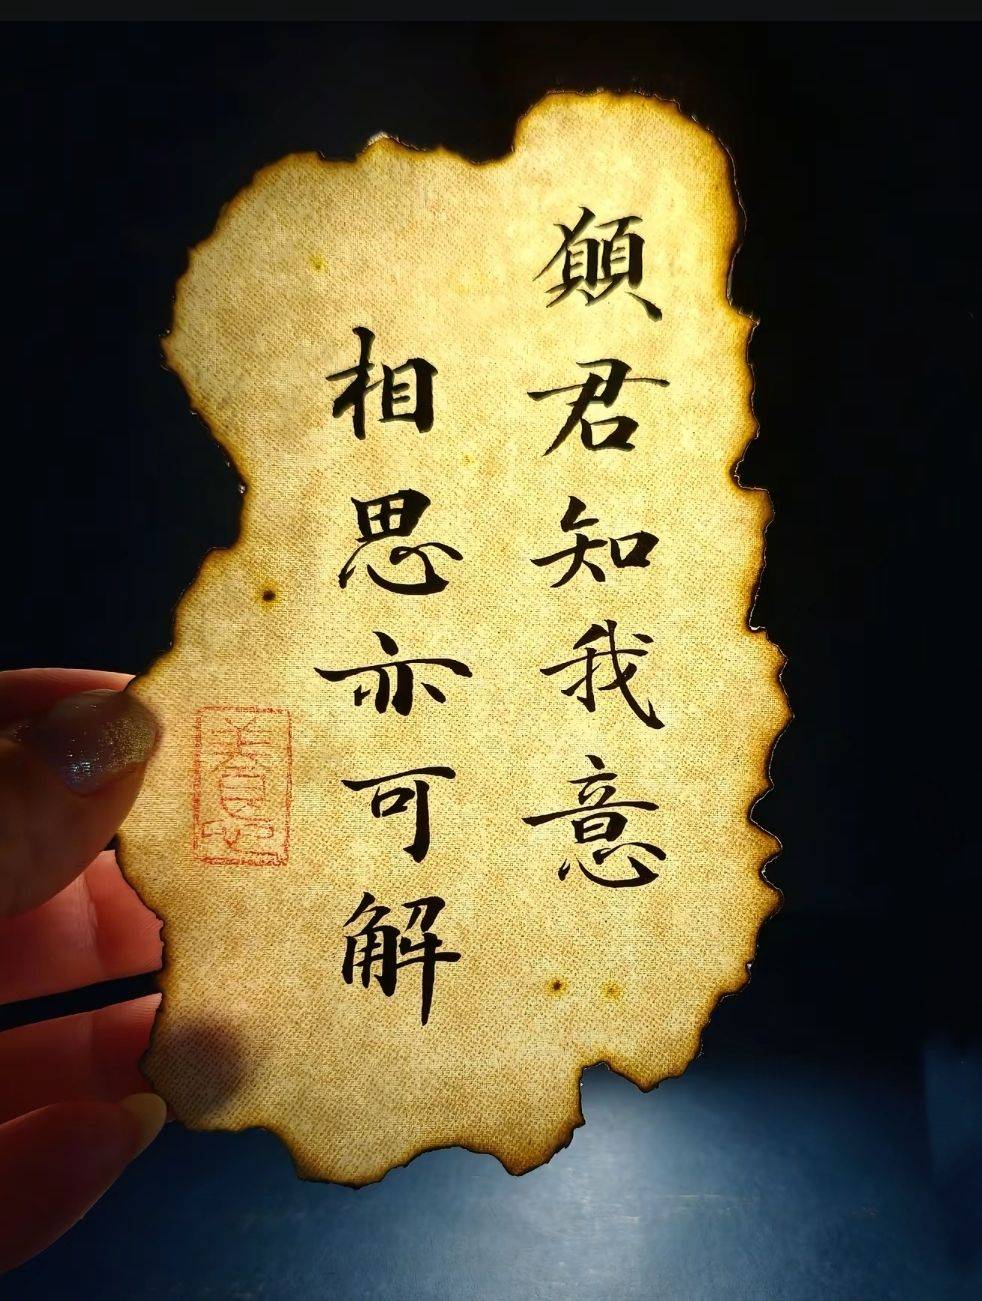 願君知我意
相思亦可解